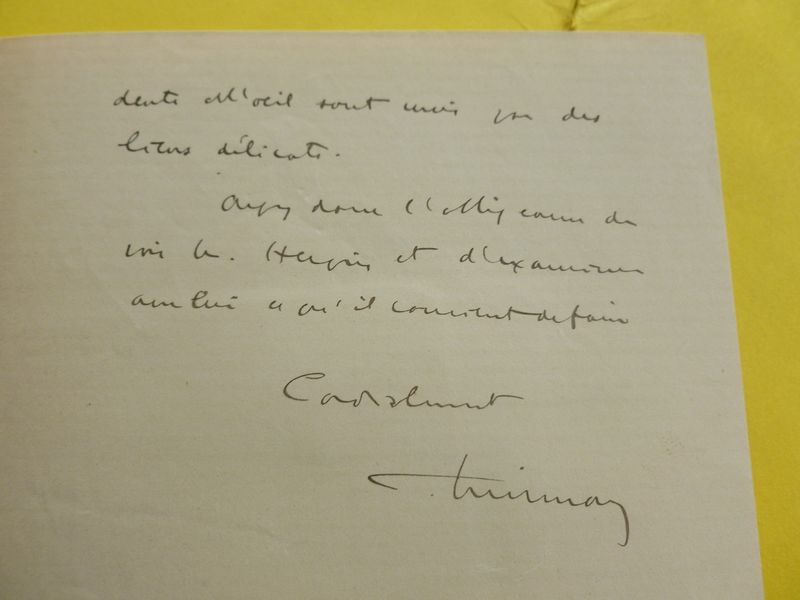 dents et l'oeil sont unis par des
liens délicats.
Ayez donc l'obligeance de
voir M. et d'examiner
avec lui ce qu'il convient de faire
Cordialement